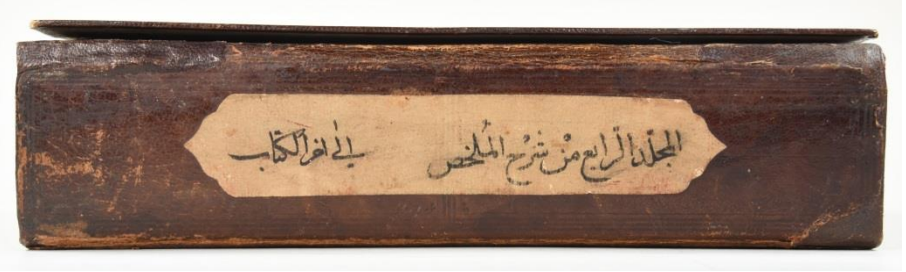 المجلد الرابع من شرح الملخص الى اخر الكتاب